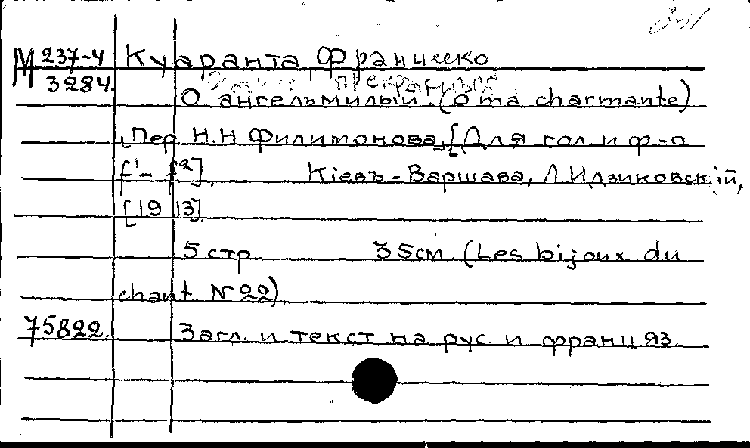 М 237-4
3284
Куаранта, Франческо
О ангел милый. (O ma charmante)
Пер. Н.Н Филимонова. [Для гол. и ф.-п
f¹ - f²]. Кіевъ - Варшава, Л. Идзиковскій,
[1913]
5 стр. 35см. (Les bijoux du
chant N 22)
75822. Загл. и текст на рус. и франц яз.